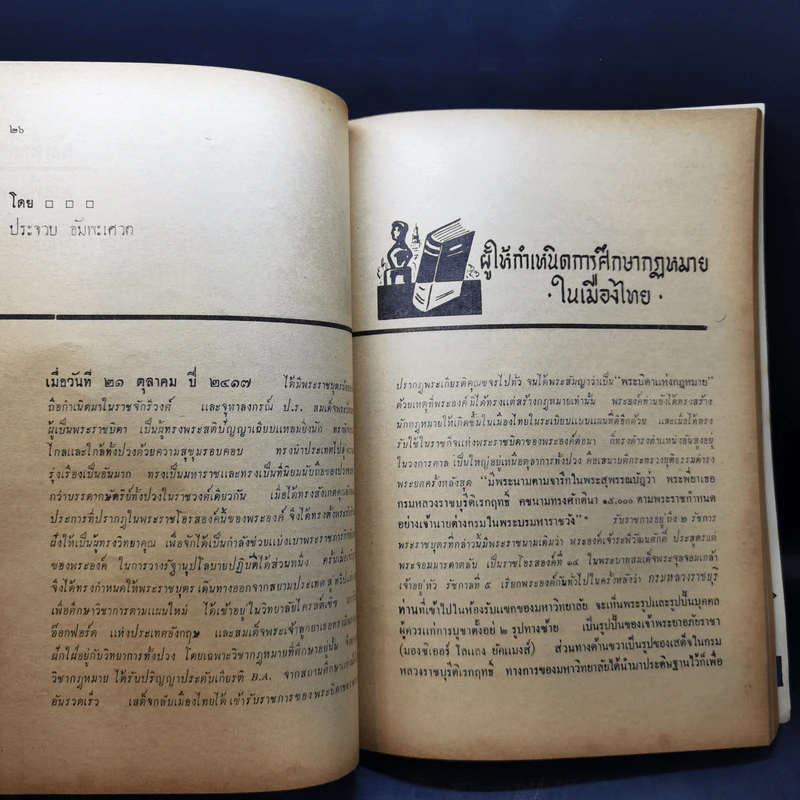 ๒๖
โดย □ □ □
ประจวบ อัมพะเศวต
เมื่อวันที่ ๒๑ ตุลาคม ปี ๒๔๑๗ ได้มีพระราชบุตร
ถือกำเนิดมาในราชจักรีวงศ์ และจุฬาลงกรณ์ ป.ร. สมเด็จ
ผู้เป็นพระราชบิดา เป็นผู้ทรงพระสติปัญญาเฉียบแหลมยิ่งนัก
ไกลและใกล้ทั้งปวงด้วยความสุขุมรอบคอบ ทรงนำประเทศไปสู่
รุ่งเรืองเป็นอันมาก ทรงเป็นมหาราชและทรงเป็นที่นิยมนับถือของ
กว่าบรรดากษัตริย์ทั้งปวงในราชวงศ์เดียวกัน เมื่อได้ทรงสังเกต
ประการที่ปรากฏในพระราชโอรสองค์นี้ของพระองค์ จึงได้ทรงตั้ง
ฝังให้เป็นผู้ทรงวิทยาคุณ เพื่อจักได้เป็นกำลังช่วยแบ่งเบาพระราชภาระ
ของพระองค์ ในการวางรัฐานุปโลบายปฏิบัติได้ส่วนหนึ่ง ครั้น
จึงได้ทรงกำหนดให้พระราชบุตร เดินทางออกจากสยามประเทศ สู่
เพื่อศึกษาวิชาการตามแผนใหม่ ได้เข้าอยู่ในวิทยาลัยไครสต์เชิช
อ๊อกฟอร์ด แห่งประเทศอังกฤษ และสมเด็จพระเจ้าลูกยาเธอ
ฝักใฝ่อยู่กับวิทยาการทั้งปวง โดยเฉพาะวิชากฎหมายที่ศึกษาอยู่นั้น
วิชากฎหมาย ได้รับปริญญาประดับเกียรติ B.A. จากสถานศึกษา
อันรวดเร็ว เสด็จกลับเมืองไทยได้ เข้ารับราชการของ พระบิดา
ผู้ให้กำเหนิดการศึกษากฎหมาย
·ในเมืองไทย·
ปรากฏพระเกียรติคุณขจรไปทั่ว จนได้พระสัญญาว่าเป็น "พระบิดาแห่งกฎหมาย"
ด้วยเหตุที่พระองค์ มิได้ทรงแต่สร้างกฎหมายเท่านั้น พระองค์ท่านยังได้ทรงสร้าง
นักกฎหมายให้เกิดขึ้นในเมืองไทยในระเบียบแบบแผนที่ดีอีกด้วย และเมื่อได้ทรง
รับใช้ในราชกิจแห่งพระราชบิดาของพระองค์ต่อมา ก็ทรงดำรงตำแหน่งอันสูงอยู่
ในวงการศาล เป็นใหญ่อยู่เหนือตุลาการทั้งปวง คือเสนาบดีกระทรวงยุติธรรมดำรง
พระยศครั้งหลังสุด "มีพระนามตามจารึกในพระสุพรรณบัฎว่า พระพี่ยาเธอ
กรมหลวงราชบุรีดิเรกฤทธิ์ คชนามทรงศักดินา ๑๕,๐๐๐ ตามพระราชกำหนด
อย่างเจ้านายต่างกรมในพระบรมมหาราชวัง" รับราชการอยู่ถึง ๒ รัชการ
พระราชบุตรที่กล่าวนี้มีพระราชนามเดิมว่า พระองค์เจ้ารพีวัฒนศักดิ์ ประสูตรแต่
พระจอมมารดาตลับ เป็นราชโอรสองค์ที่ ๑๔ ในพระบาทสมเด็จพระจุลจอมเกล้า
เจ้าอยู่หัว รัชกาลที่ ๕ เรียกพระองค์กันทั่วไปในครั้งหลังว่า กรมหลวงราชบุรี
ท่านที่เข้าไปในห้องรับแขกของมหาวิทยาลัย จะเห็นพระรูปและรูปปั้นบุคคล
ผู้ควรแก่การบูชาตั้งอยู่ ๒ รูปทางซ้าย เป็นรูปปั้นของเจ้าพระยาอภัยราชา
(มองซิเออร์ โลแลง ยัคแมงส์) ส่วนทางด้านขวาเป็นรูปของเสด็จในกรม
หลวงราชบุรีดิเรกฤทธิ์ ทางการของมหาวิทยาลัยได้นำมาประดิษฐานไว้ก็เพื่อ